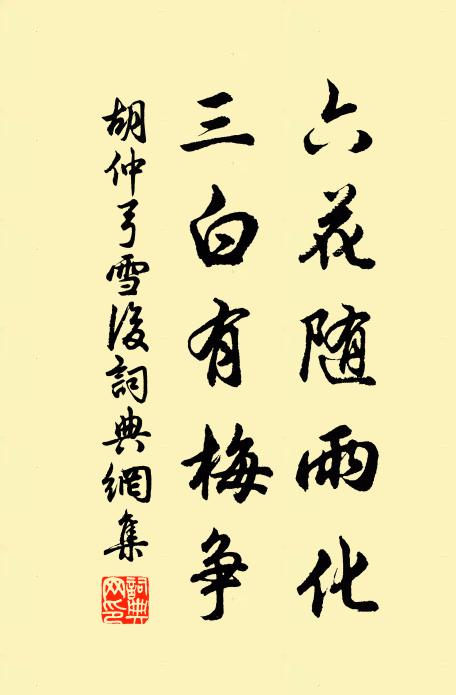 六花随雨化
三白有梅争
胡仲弓雪後詞典網集
詞典网印